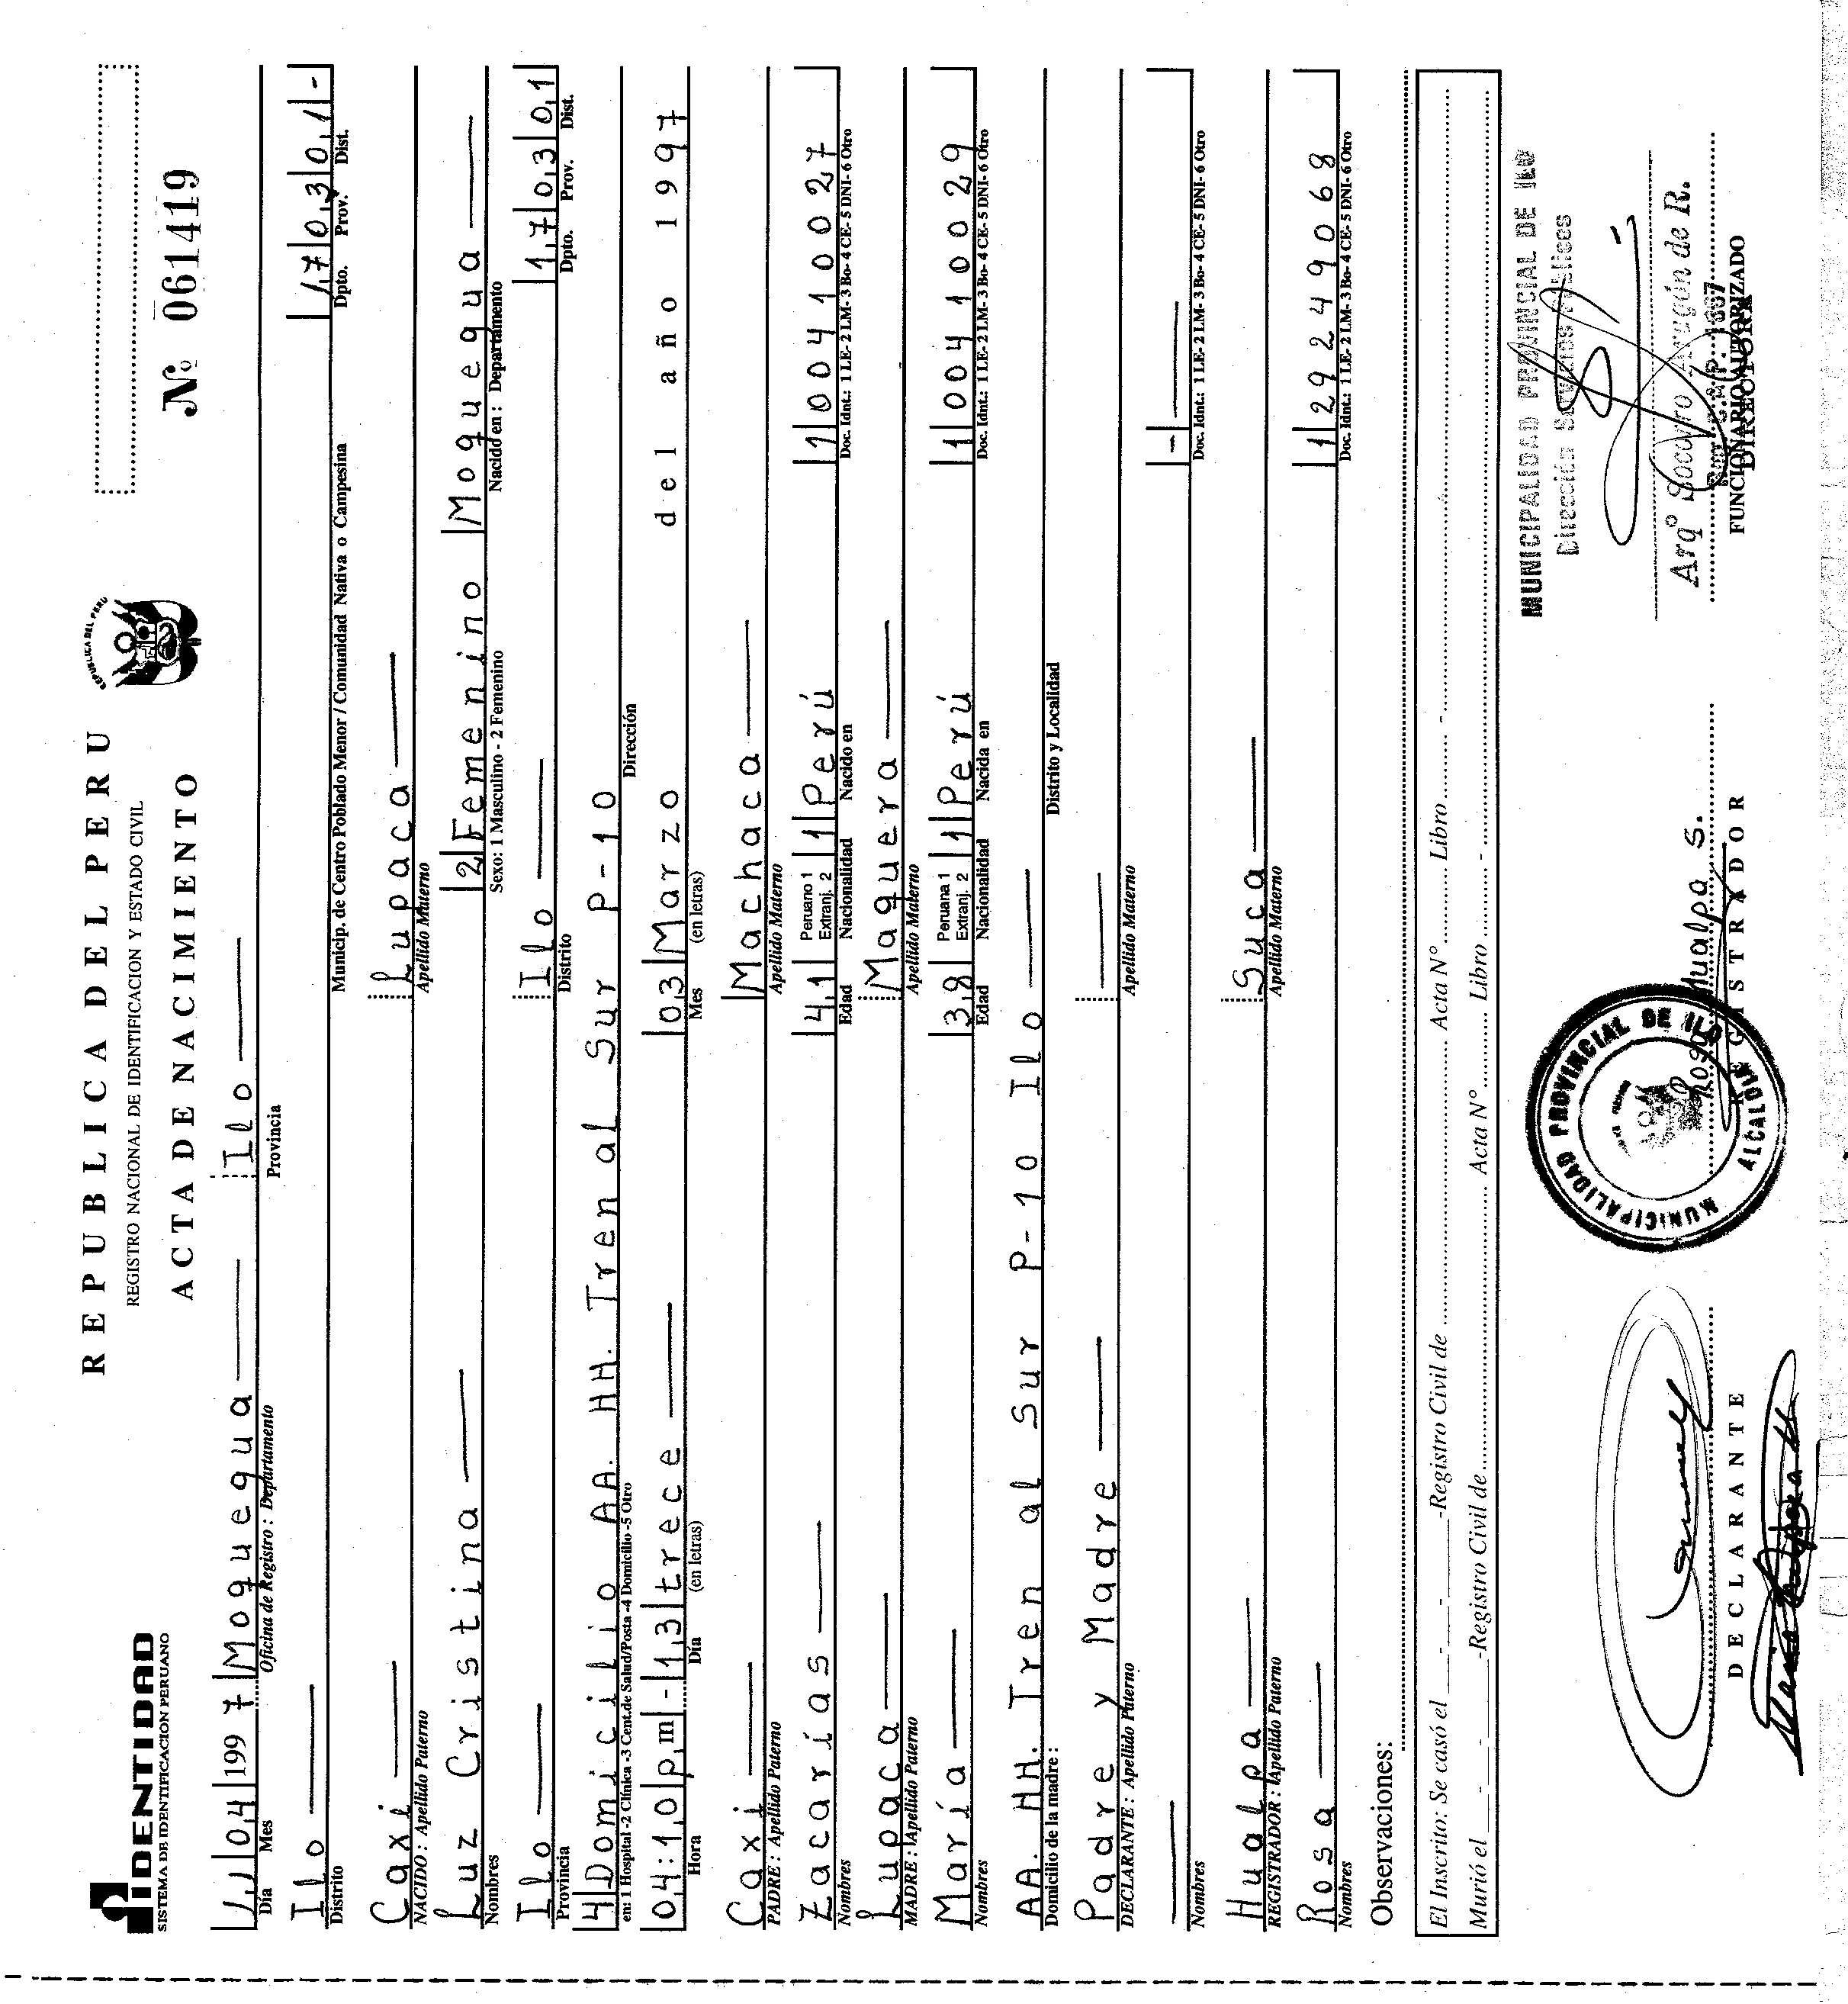 REPUBLICA DEL PERU
REPUBLICA DEL PERU
REGISTRO NACIONAL DE IDENTIFICACION Y ESTADO CIVIL
ACTA DE NACIMIENTO
Nº 061419
IDENTIDAD
SISTEMA DE IDENTIFICACION PERUANO
11 04 1997 Moquegua Ilo
Día Mes Oficina de Registro : Departamento Provincia
Ilo 17 03 01 -
Distrito Municip. de Centro Poblado Menor / Comunidad Nativa o Campesina Dpto. Prov. Dist.
Caxi Lupaca
NACIDO : Apellido Paterno Apellido Materno
Luz Cristina 2 Femenino Moquegua
Nombres Sexo: 1 Masculino - 2 Femenino Nacido en : Departamento
Ilo Ilo 17 03 01
Provincia Distrito Dpto. Prov. Dist.
4 Domicilio AA. HH. Tren al Sur P-10
en: 1 Hospital -2 Clínica -3 Cent.de Salud/Posta -4 Domicilio -5 Otro Dirección
04:10 pm - 13 trece 03 Marzo del año 1997
Hora Día (en letras) Mes (en letras)
Caxi Machaca
PADRE : Apellido Paterno Apellido Materno
Zacarías 41 Peruano 1 Extranj. 2 1 Perú 1 00410027
Nombres Edad Nacionalidad Nacido en Doc. Idnt.: 1 LE- 2 LM- 3 Bo- 4 CE- 5 DNI- 6 Otro
Lupaca Maquera
MADRE : Apellido Paterno Apellido Materno
María 38 Peruana 1 Extranj. 2 1 Perú 1 00410029
Nombres Edad Nacionalidad Nacida en Doc. Idnt.: 1 LE- 2 LM- 3 Bo- 4 CE- 5 DNI- 6 Otro
AA. HH. Tren al Sur P-10 Ilo
Domicilio de la madre : Distrito y Localidad
Padre y Madre
DECLARANTE : Apellido Paterno Apellido Materno
-
Nombres Doc. Idnt.: 1 LE- 2 LM- 3 Bo- 4 CE- 5 DNI- 6 Otro
Hualpa Suca
REGISTRADOR : Apellido Paterno Apellido Materno
Rosa 1 29249068
Nombres Doc. Idnt.: 1 LE- 2 LM- 3 Bo- 4 CE- 5 DNI- 6 Otro
Observaciones:
El Inscrito: Se casó el - - -Registro Civil de Acta Nº Libro -
Murió el - - -Registro Civil de Acta Nº Libro -
MUNICIPALIDAD PROVINCIAL DE ILO
Dirección Servicios Públicos
MUNICIPALIDAD PROVINCIAL DE ILO
ALCALDIA
Rosa Hualpa S.
Arqº Socorro Aragón de R.
DECLARANTE REGISTRADOR FUNCIONARIO AUTORIZADO
DIRECTORA